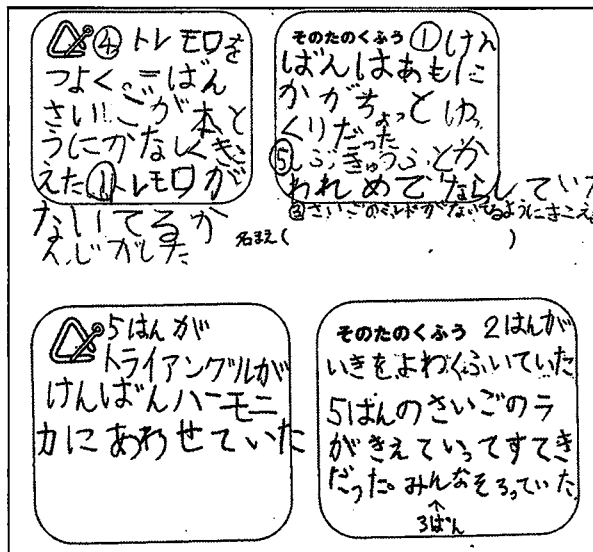 ④トレモロを
つよく。二ばん
さいごが本と
うにかなしくきこ
えた①トレモロが
ないてるか
んじがした
そのたのくふう ①けん
ばんはあもに
かがちょっとゆっ
くりだった
⑤しぶきゅうふとか
われめでならしていた
③さいごのミレドがないてるようにきこえ
名まえ( )
5はんが
トライアングルが
けんばんハーモニ
カにあわせていた
そのたのくふう 2はんが
いきをよわくふいていた
5ばんのさいごのラ
がきえていってすてき
だった。みんなそろっていた
↑
3ばん